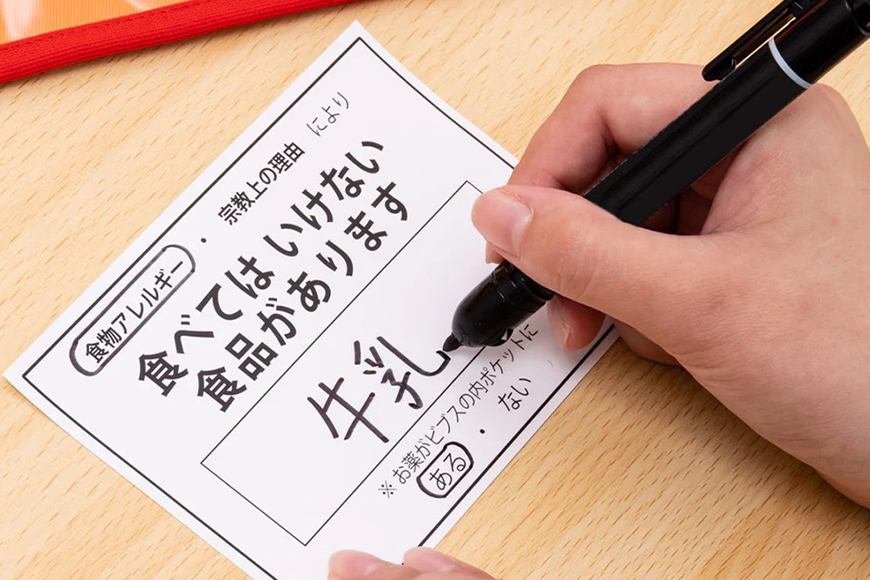 食物アレルギー・宗教上の理由 により
食べてはいけない
食品があります
牛乳
※お薬がビブスの内ポケットに
ある・ない